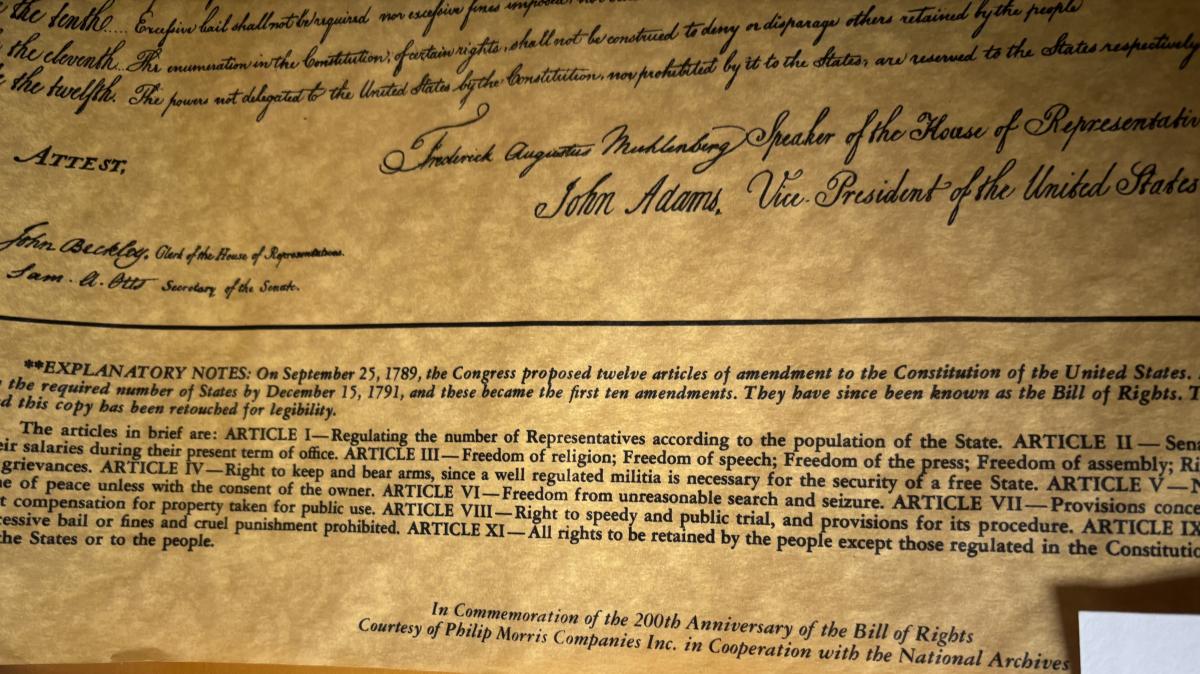 the tenth..... Excessive bail shall not be required nor excessive fines imposed,
the eleventh... The enumeration in the Constitution, of certain rights, shall not be construed to deny or disparage others retained by the people
the twelfth. The powers not delegated to the United States by the Constitution, nor prohibited by it to the States, are reserved to the States respectively
ATTEST,
Frederick Augustus Muhlenberg Speaker of the House of Representativ
John Adams, Vice-President of the United States
John Beckley, Clerk of the House of Representatives.
Sam. A. Otis Secretary of the Senate.
**EXPLANATORY NOTES: On September 25, 1789, the Congress proposed twelve articles of amendment to the Constitution of the United States.
the required number of States by December 15, 1791, and these became the first ten amendments. They have since been known as the Bill of Rights. T
d this copy has been retouched for legibility.
The articles in brief are: ARTICLE I—Regulating the number of Representatives according to the population of the State. ARTICLE II — Sena
eir salaries during their present term of office. ARTICLE III—Freedom of religion; Freedom of speech; Freedom of the press; Freedom of assembly; Ri
grievances. ARTICLE IV—Right to keep and bear arms, since a well regulated militia is necessary for the security of a free State. ARTICLE V—N
e of peace unless with the consent of the owner. ARTICLE VI—Freedom from unreasonable search and seizure. ARTICLE VII—Provisions conce
t compensation for property taken for public use. ARTICLE VIII—Right to speedy and public trial, and provisions for its procedure. ARTICLE IX
cessive bail or fines and cruel punishment prohibited. ARTICLE XI—All rights to be retained by the people except those regulated in the Constitutio
the States or to the people.
In Commemoration of the 200th Anniversary of the Bill of Rights
Courtesy of Philip Morris Companies Inc. in Cooperation with the National Archives